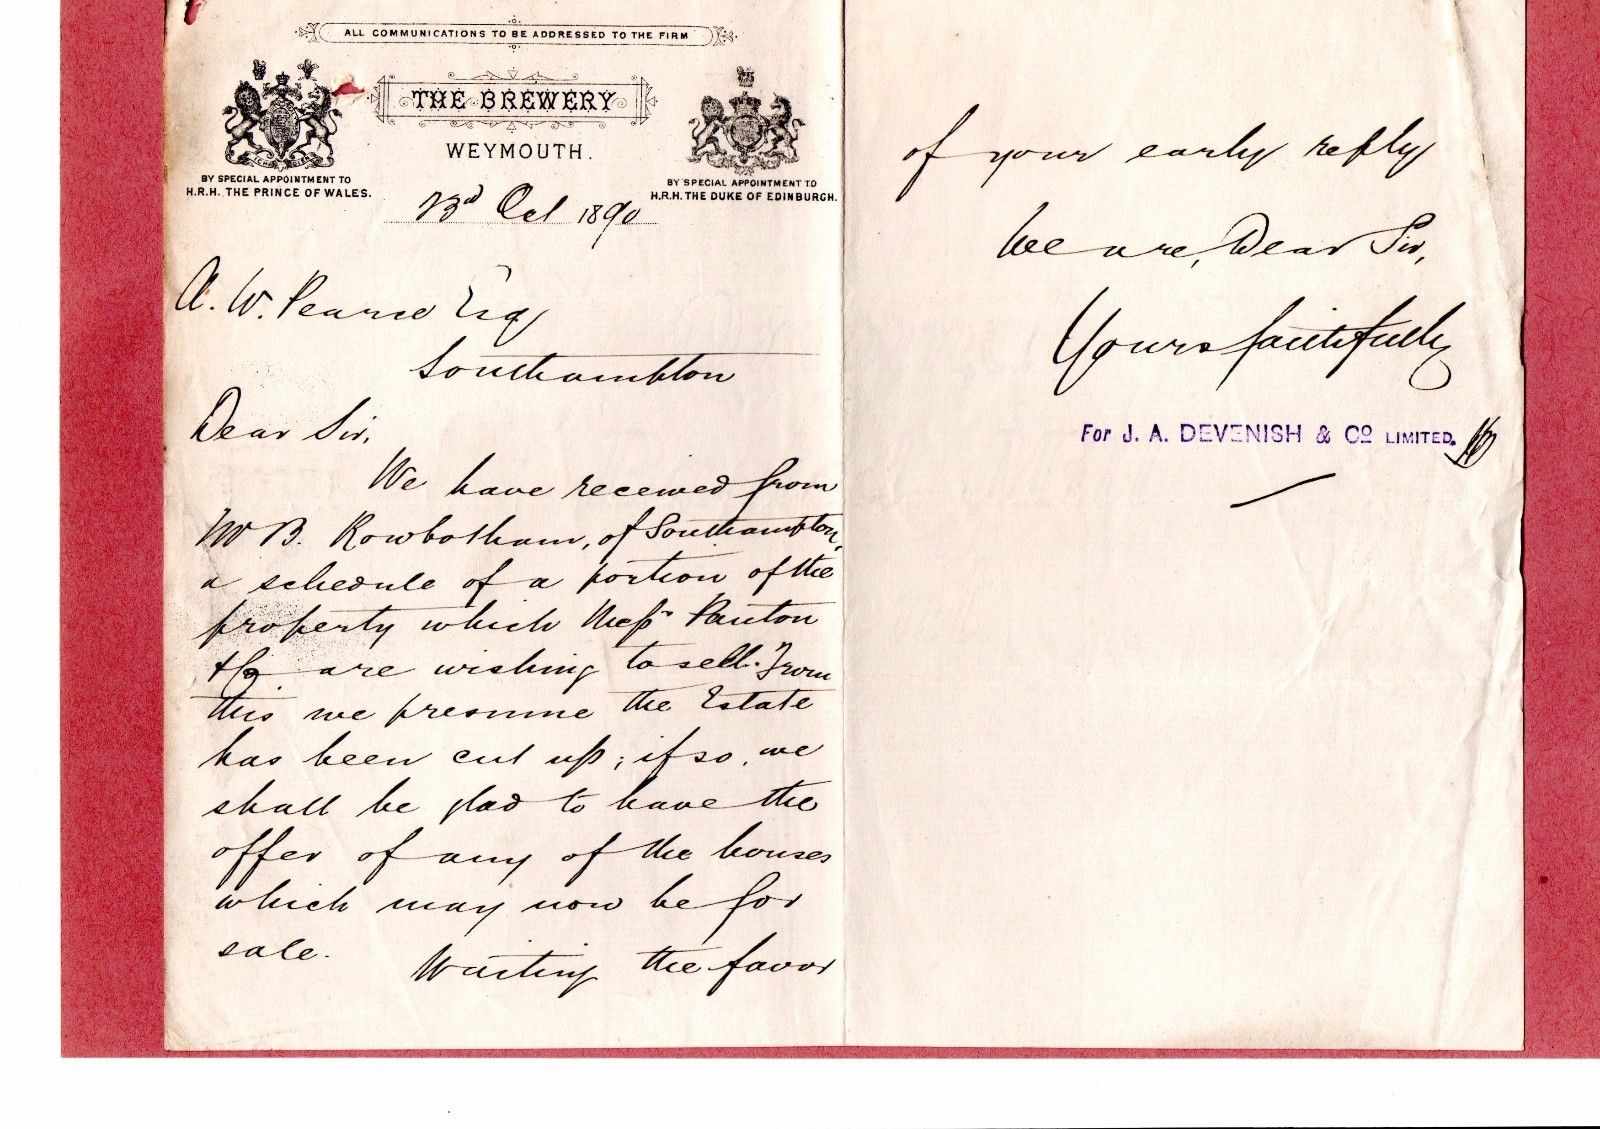 ALL COMMUNICATIONS TO BE ADDRESSED TO THE FIRM
THE BREWERY
WEYMOUTH.
BY SPECIAL APPOINTMENT TO
H.R.H. THE PRINCE OF WALES.
BY SPECIAL APPOINTMENT TO
H.R.H. THE DUKE OF EDINBURGH.
23rd Oct 1890
A. W. Pearce Esq
Southampton
Dear Sir,
We have received from
Mr B. Rowbotham, of Southampton,
a schedule of a portion of the
property which Messrs Panton
& Co are wishing to sell. From
this we presume the Estate
has been cut up; if so, we
shall be glad to have the
offer of any of the houses
which may now be for
sale.
Waiting the favor
of your early reply
We are, Dear Sir,
Yours faithfully
For J. A. DEVENISH & Co LIMITED.